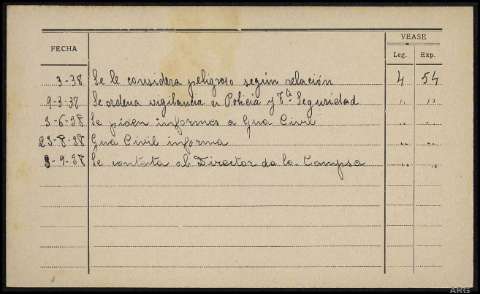 VEASE
FECHA Leg. Exp.
3-38 Se le considera peligroso según relación 4 54
9-3-38 Se ordena vigilancia a Policía y Tª Seguridad " "
3-6-38 Se piden informes a Gua Civil " "
23-8-38 Gua Civil informa " "
9-9-38 Se contesta al Director de la Campsa " "